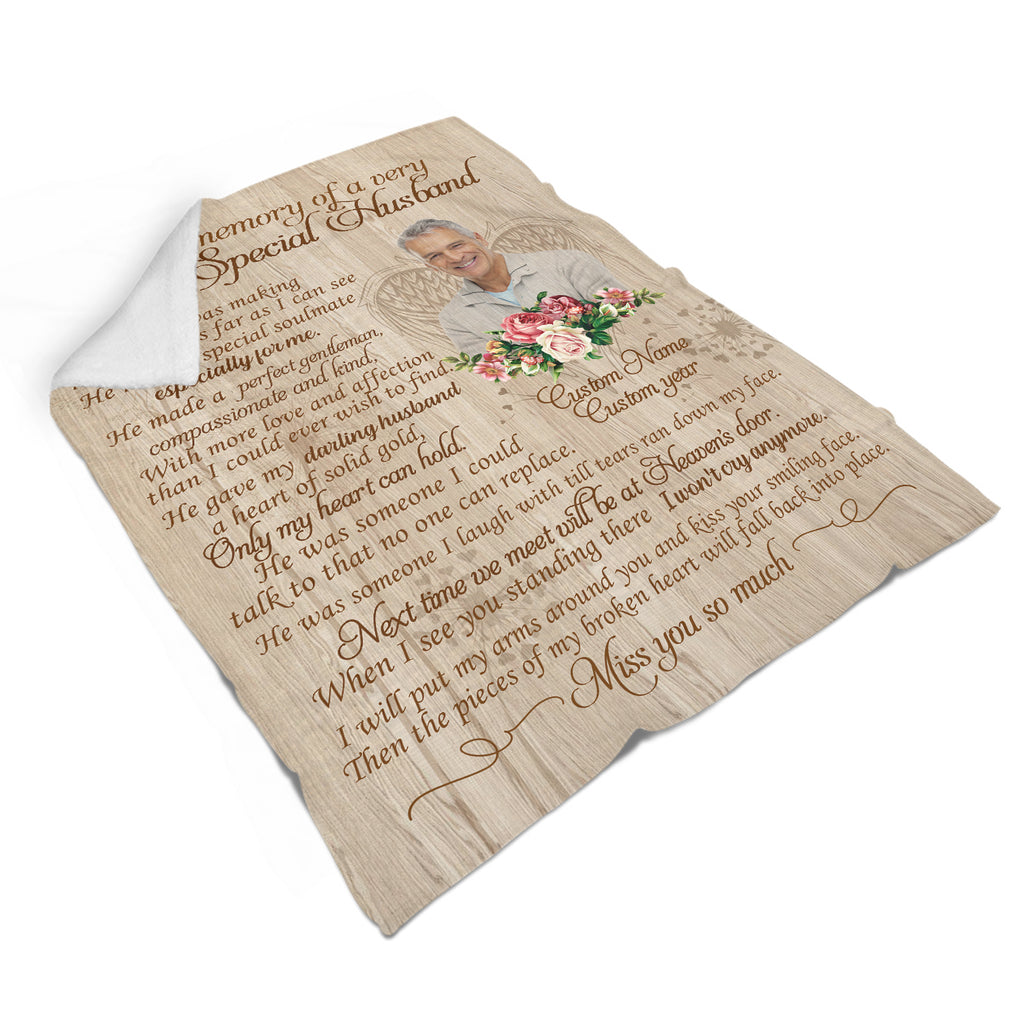 memory of a very
Special Husband
was making
far as I can see
special soulmate
especially for me.
He made a perfect gentleman,
compassionate and kind,
With more love and affection
than I could ever wish to find.
He gave my darling husband
a heart of solid gold,
Only my heart can hold.
He was someone I could
talk to that no one can replace.
He was someone I laugh with till tears ran down my face.
Next time we meet will be at Heaven's door.
When I see you standing there I won't cry anymore.
I will put my arms around you and kiss your smiling face.
Then the pieces of my broken heart will fall back into place.
Miss you so much
Custom Name
Custom year